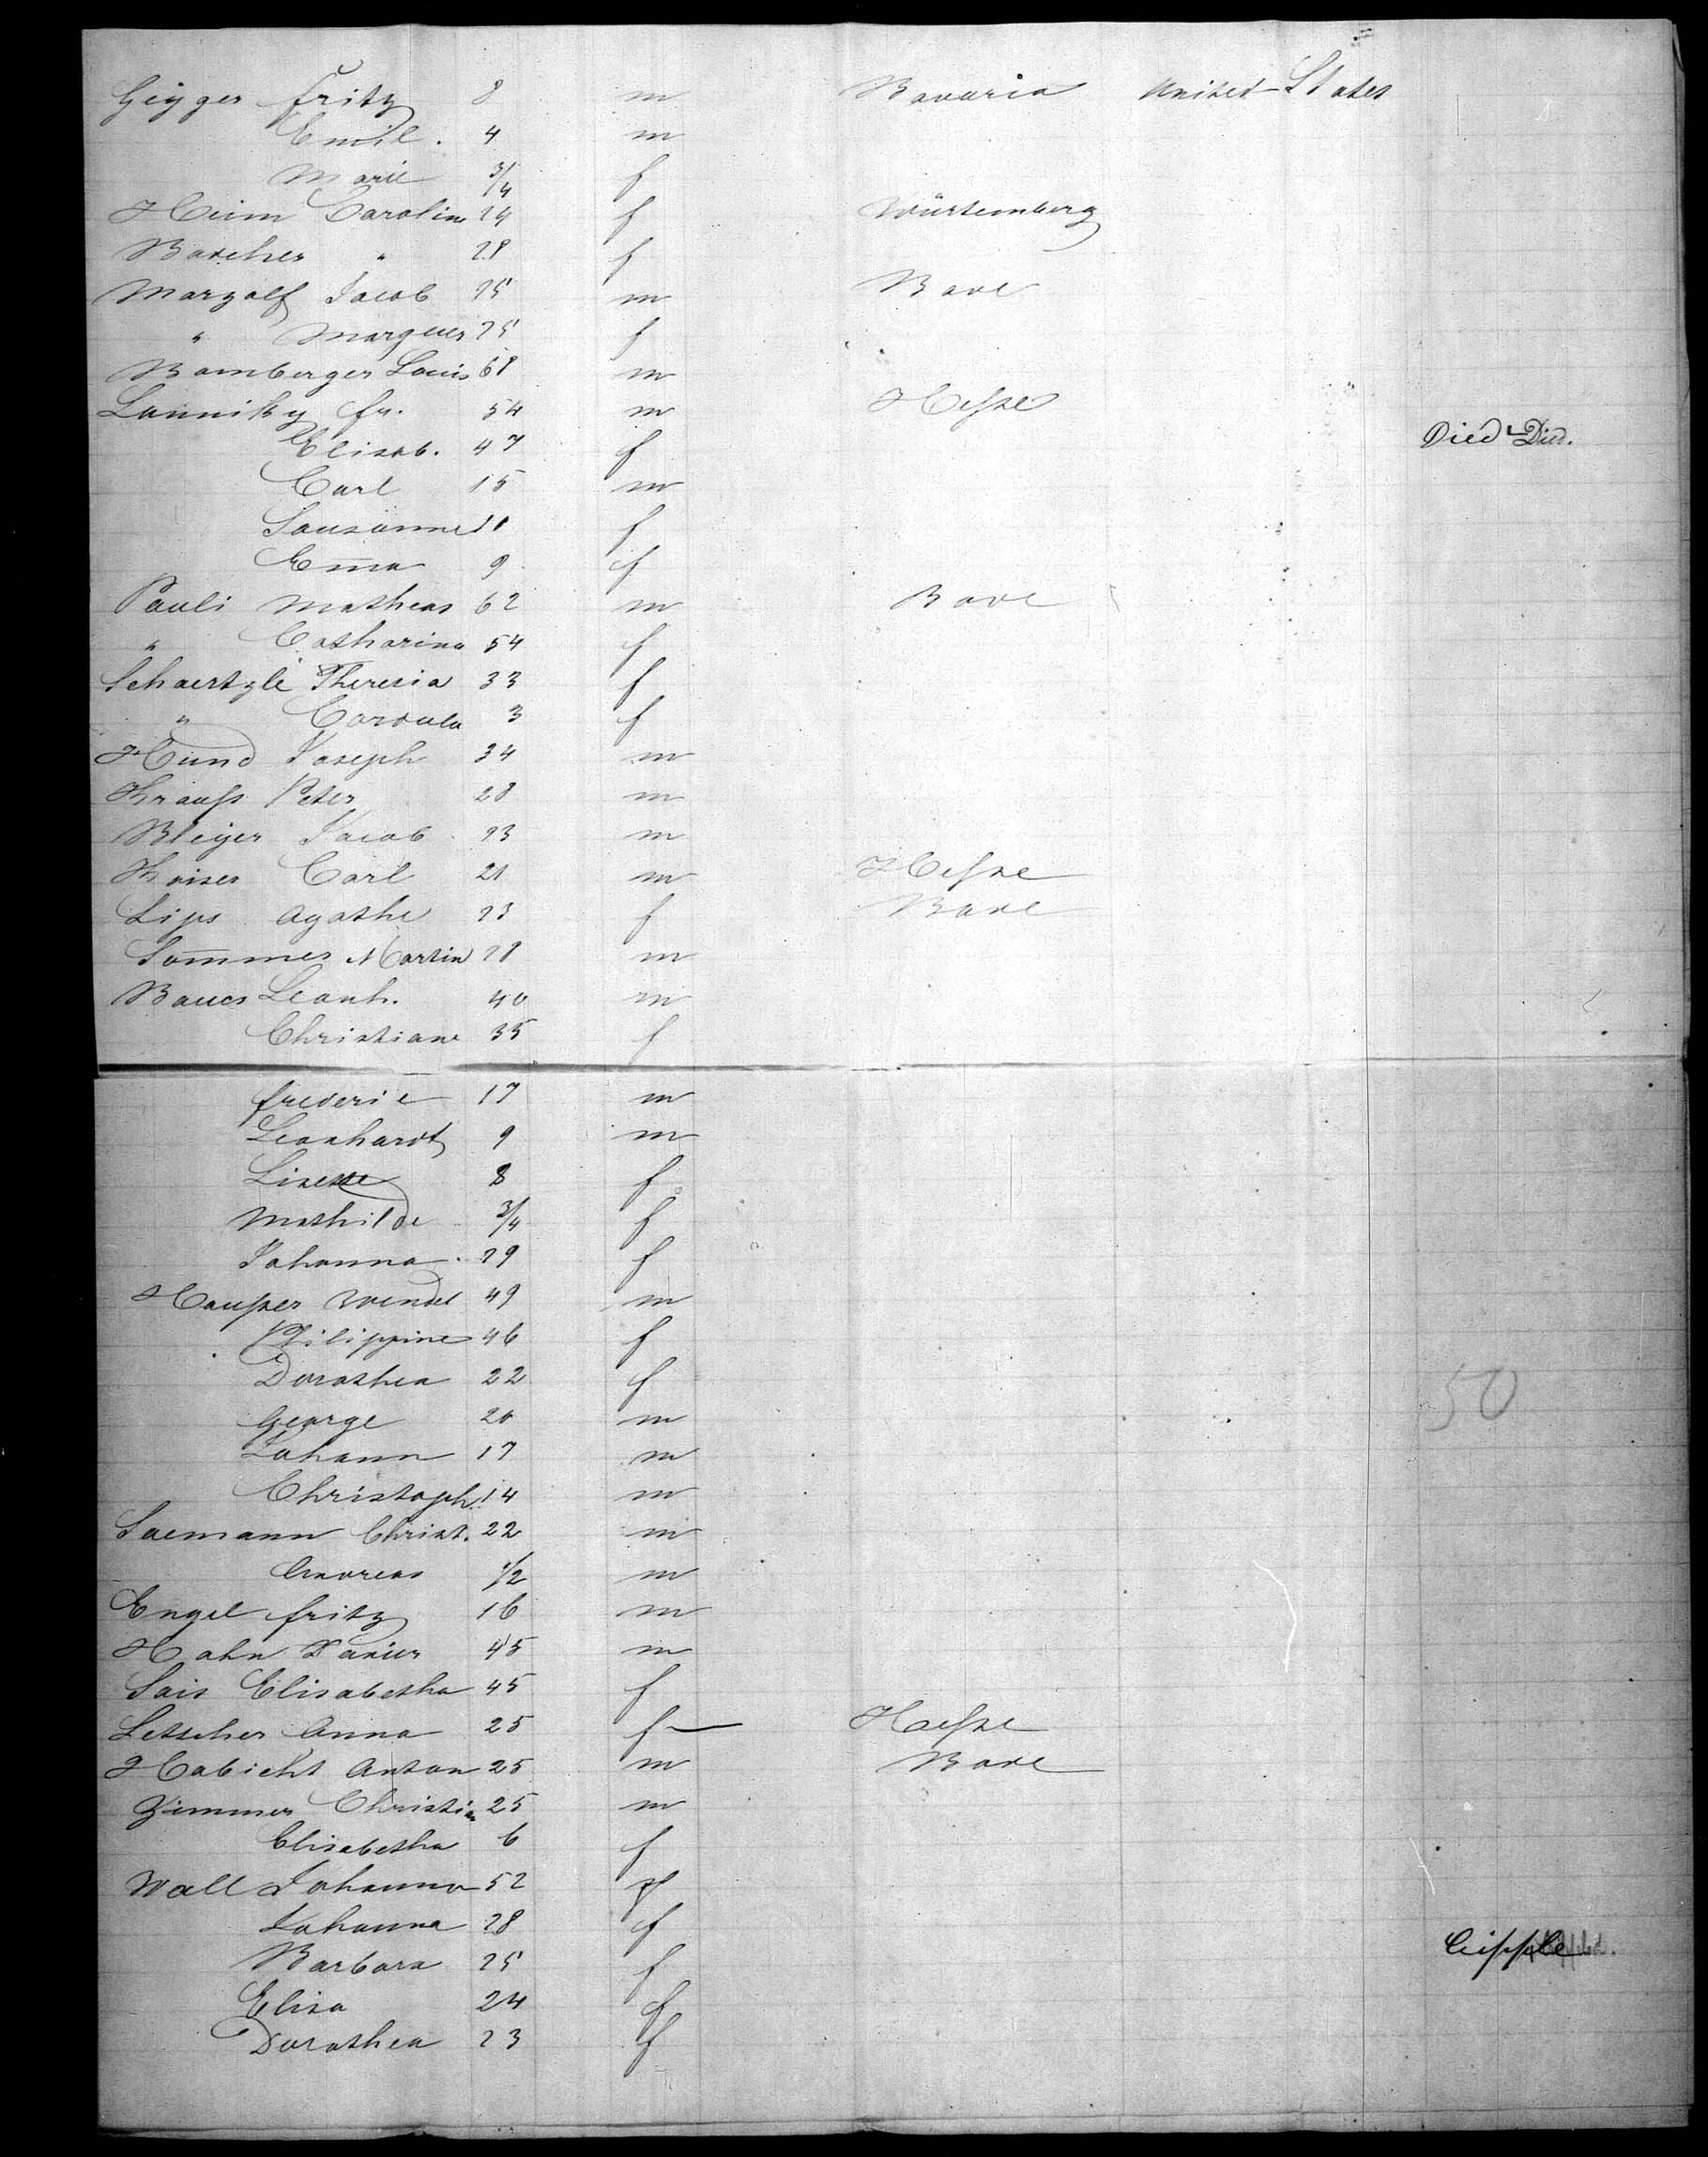 Geyger Fritz 8 m Bavaria United States
Emil. 4 m
Marie 3/4 f
Heim Caroline 24 f Würtemberg
Bascher " 28 f
Marzolf Jacob 25 m Bade
" Marguer 25 f
Bamberger Louis 68 m
fr. 54 m Hesse
Elisab. 47 f Died Died.
Carl 15 m
Sausanne 11 f
Em̅a 9 f
Pauli Matheas 62 m Bade
" Catharina 54 f
Schaertzle Theresia 33 f
" Cordula 3 f
Hund Joseph 34 m
Krauss Peter 28 m
Bleyer Jacob 23 m
Kaiser Carl 21 m Hesse
Lips Agathe 23 f Bade
Som̅mer Martin 28 m
Bauer Leonh. 40 m
Christiane 35 f
frederic 17 m
Leonhardt 9 m
Lisette 8 f
Mathilde 3/4 f
Johanna. 29 f
Hausser Wendel 49 m
Philippine 46 f
Dorothea 22 f 50
George 20 m
Johann 17 m
Christoph 14 m
Saemann Christ. 22 m
Andreas 1/2 m
Engel fritz 16 m
Hahn Xavier 45 m
Sais Elisabetha 45 f
Letscher Anna 25 f Hesse
Habicht Anton 25 m Bade
Zimmer Christian 25 m
Elisabetha 6 f
Wall Johanna 52 f
Johanna 28 f
Barbara 25 f
Elisa 24 f
Dorothea 23 f